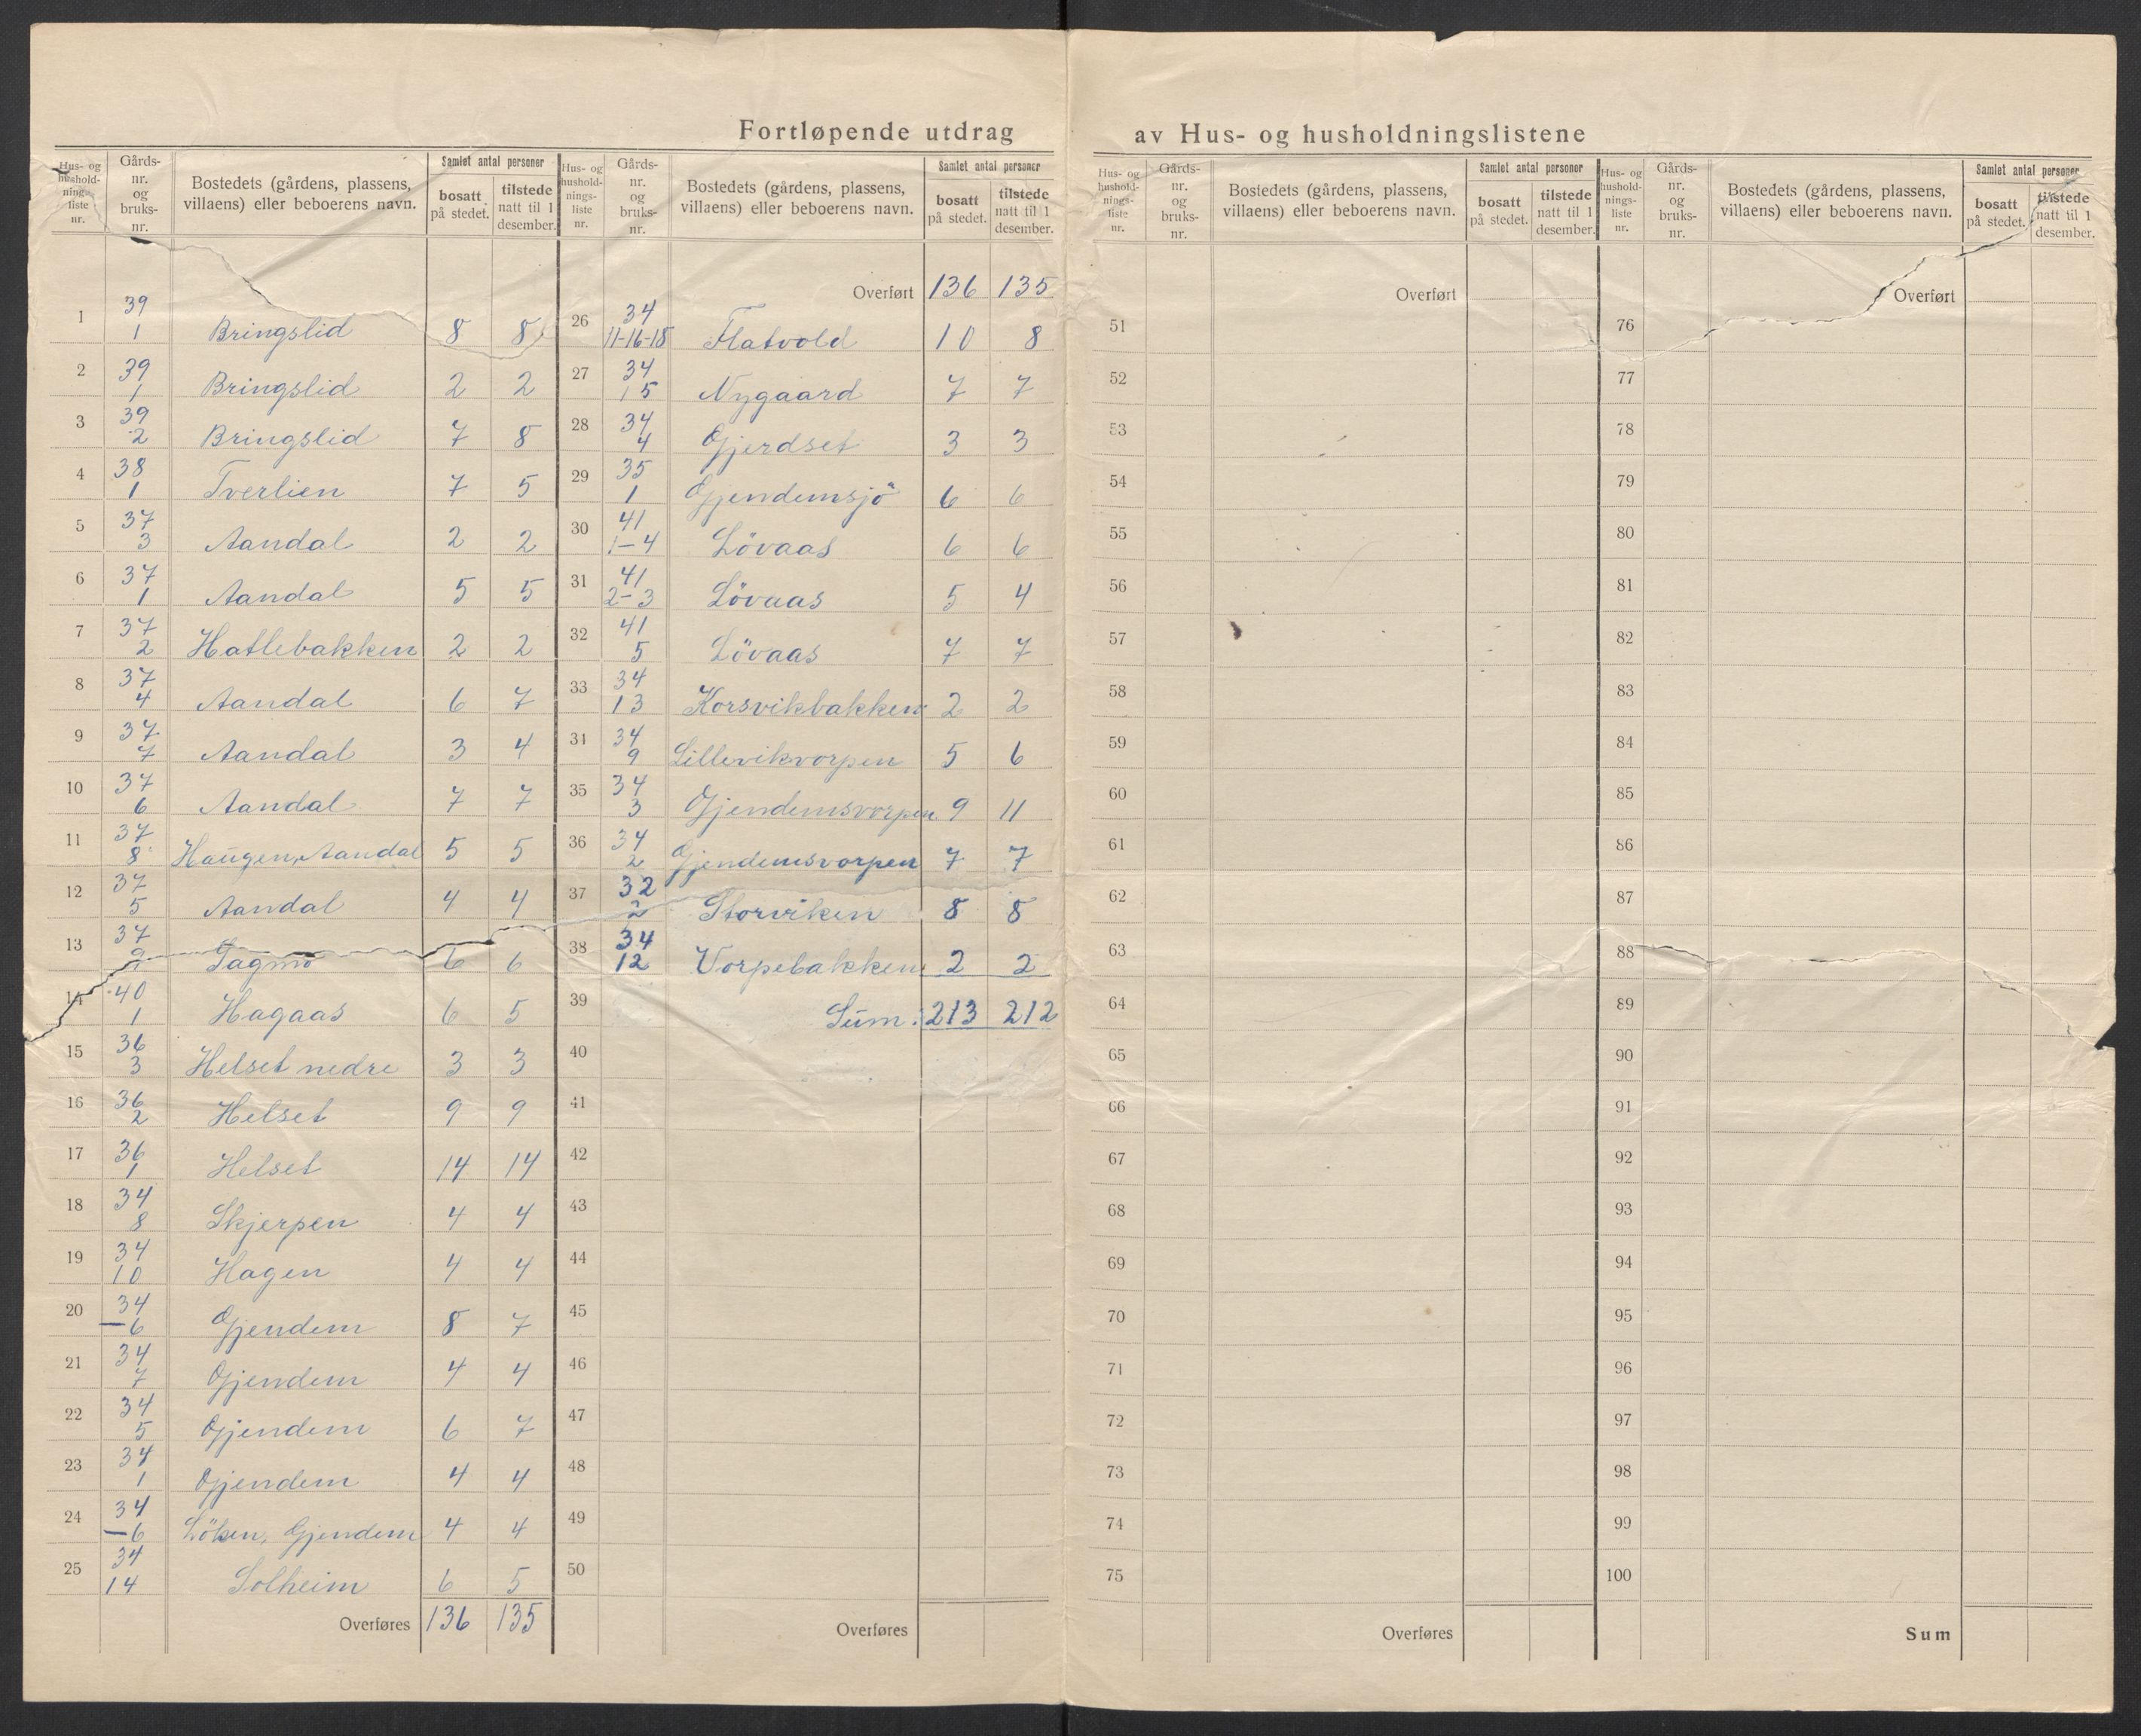 Fortløpende utdrag av Hus- og husholdningslistene
Hus- og hushold-nings-liste nr. | Gårds-nr. og bruks-nr. | Bostedets (gårdens, plassens, villaens) eller beboerens navn. | Samlet antal personer | bosatt på stedet. | tilstede natt til 1 desember.
1 39 1 Bringslid 8 8
2 39 1 Bringslid 2 2
3 39 2 Bringslid 7 8
4 38 1 Tverlien 7 5
5 37 3 Aandal 2 2
6 37 1 Aandal 5 5
7 37 2 Hatlebakken 2 2
8 37 4 Aandal 6 7
9 37 7 Aandal 3 4
10 37 6 Aandal 7 7
11 37 8 Haugen, Aandal 5 5
12 37 5 Aandal 4 4
13 37 9 Sagmo 6 6
14 40 1 Hagaas 6 5
15 36 3 Helset nedre 3 3
16 36 2 Helset 9 9
17 36 1 Helset 14 14
18 34 8 Skjerpen 4 4
19 34 10 Hagen 4 4
20 34 —6 Gjendem 8 7
21 34 7 Gjendem 4 4
22 34 5 Gjendem 6 7
23 34 1 Gjendem 4 4
24 34 —6 Löken, Gjendem 4 4
25 34 14 Solheim 6 5
Overføres 136 135
Hus- og hushold-nings-liste nr. | Gårds-nr. og bruks-nr. | Bostedets (gårdens, plassens, villaens) eller beboerens navn. | Samlet antal personer | bosatt på stedet. | tilstede natt til 1 desember.
Overført 136 135
26 34 11-16-18 Flatvold 10 8
27 34 15 Nygaard 7 7
28 34 4 Gjerdset 3 3
29 35 1 Gjendemsjö 6 6
30 41 1-4 Lövaas 6 6
31 41 2-3 Lövaas 5 4
32 41 5 Lövaas 7 7
33 34 13 Korsvikbakken 2 2
34 34 9 Lillevikvorpen 5 6
35 34 3 Gjendemsvorpen 9 11
36 34 2 Gjendemsvorpen 7 7
37 32 2 Storviken 8 8
38 34 12 Vorpebakken 2 2
39 Sum: 213 212
40
41
42
43
44
45
46
47
48
49
50
Overføres
Hus- og hushold-nings-liste nr. | Gårds-nr. og bruks-nr. | Bostedets (gårdens, plassens, villaens) eller beboerens navn. | Samlet antal personer | bosatt på stedet. | tilstede natt til 1 desember.
Overført
51
52
53
54
55
56
57
58
59
60
61
62
63
64
65
66
67
68
69
70
71
72
73
74
75
Overføres
Hus- og hushold-nings-liste nr. | Gårds-nr. og bruks-nr. | Bostedets (gårdens, plassens, villaens) eller beboerens navn. | Samlet antal personer | bosatt på stedet. | tilstede natt til 1 desember.
Overført
76
77
78
79
80
81
82
83
84
85
86
87
88
89
90
91
92
93
94
95
96
97
98
99
100
Sum